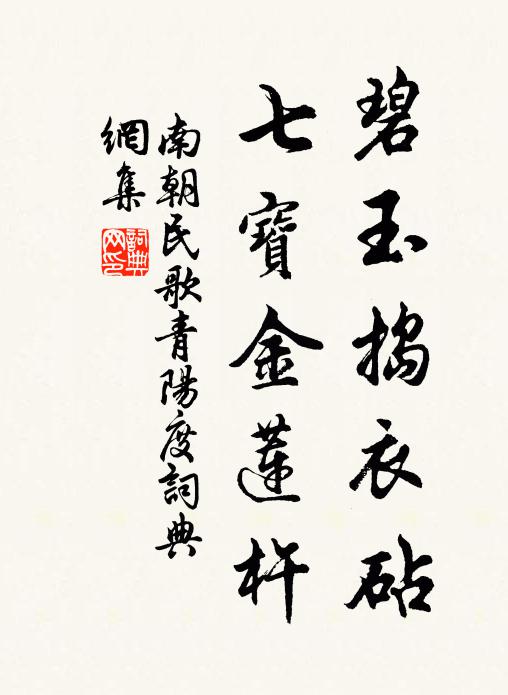 碧玉搗衣砧
七寶金蓮杵
南朝民歌青陽度詞典
網集
詞典網印